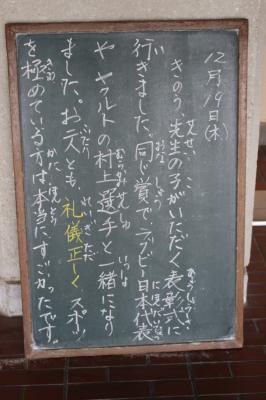 12月19日(木)
きのう、先生の子がいただく表彰式に
行きました。同じ賞で、ラグビー日本代表
や ヤクルトの村上選手と一緒になり
ました。お二人とも、礼儀正しく スポーツ
を極めている方は、本当に、すごかったです。